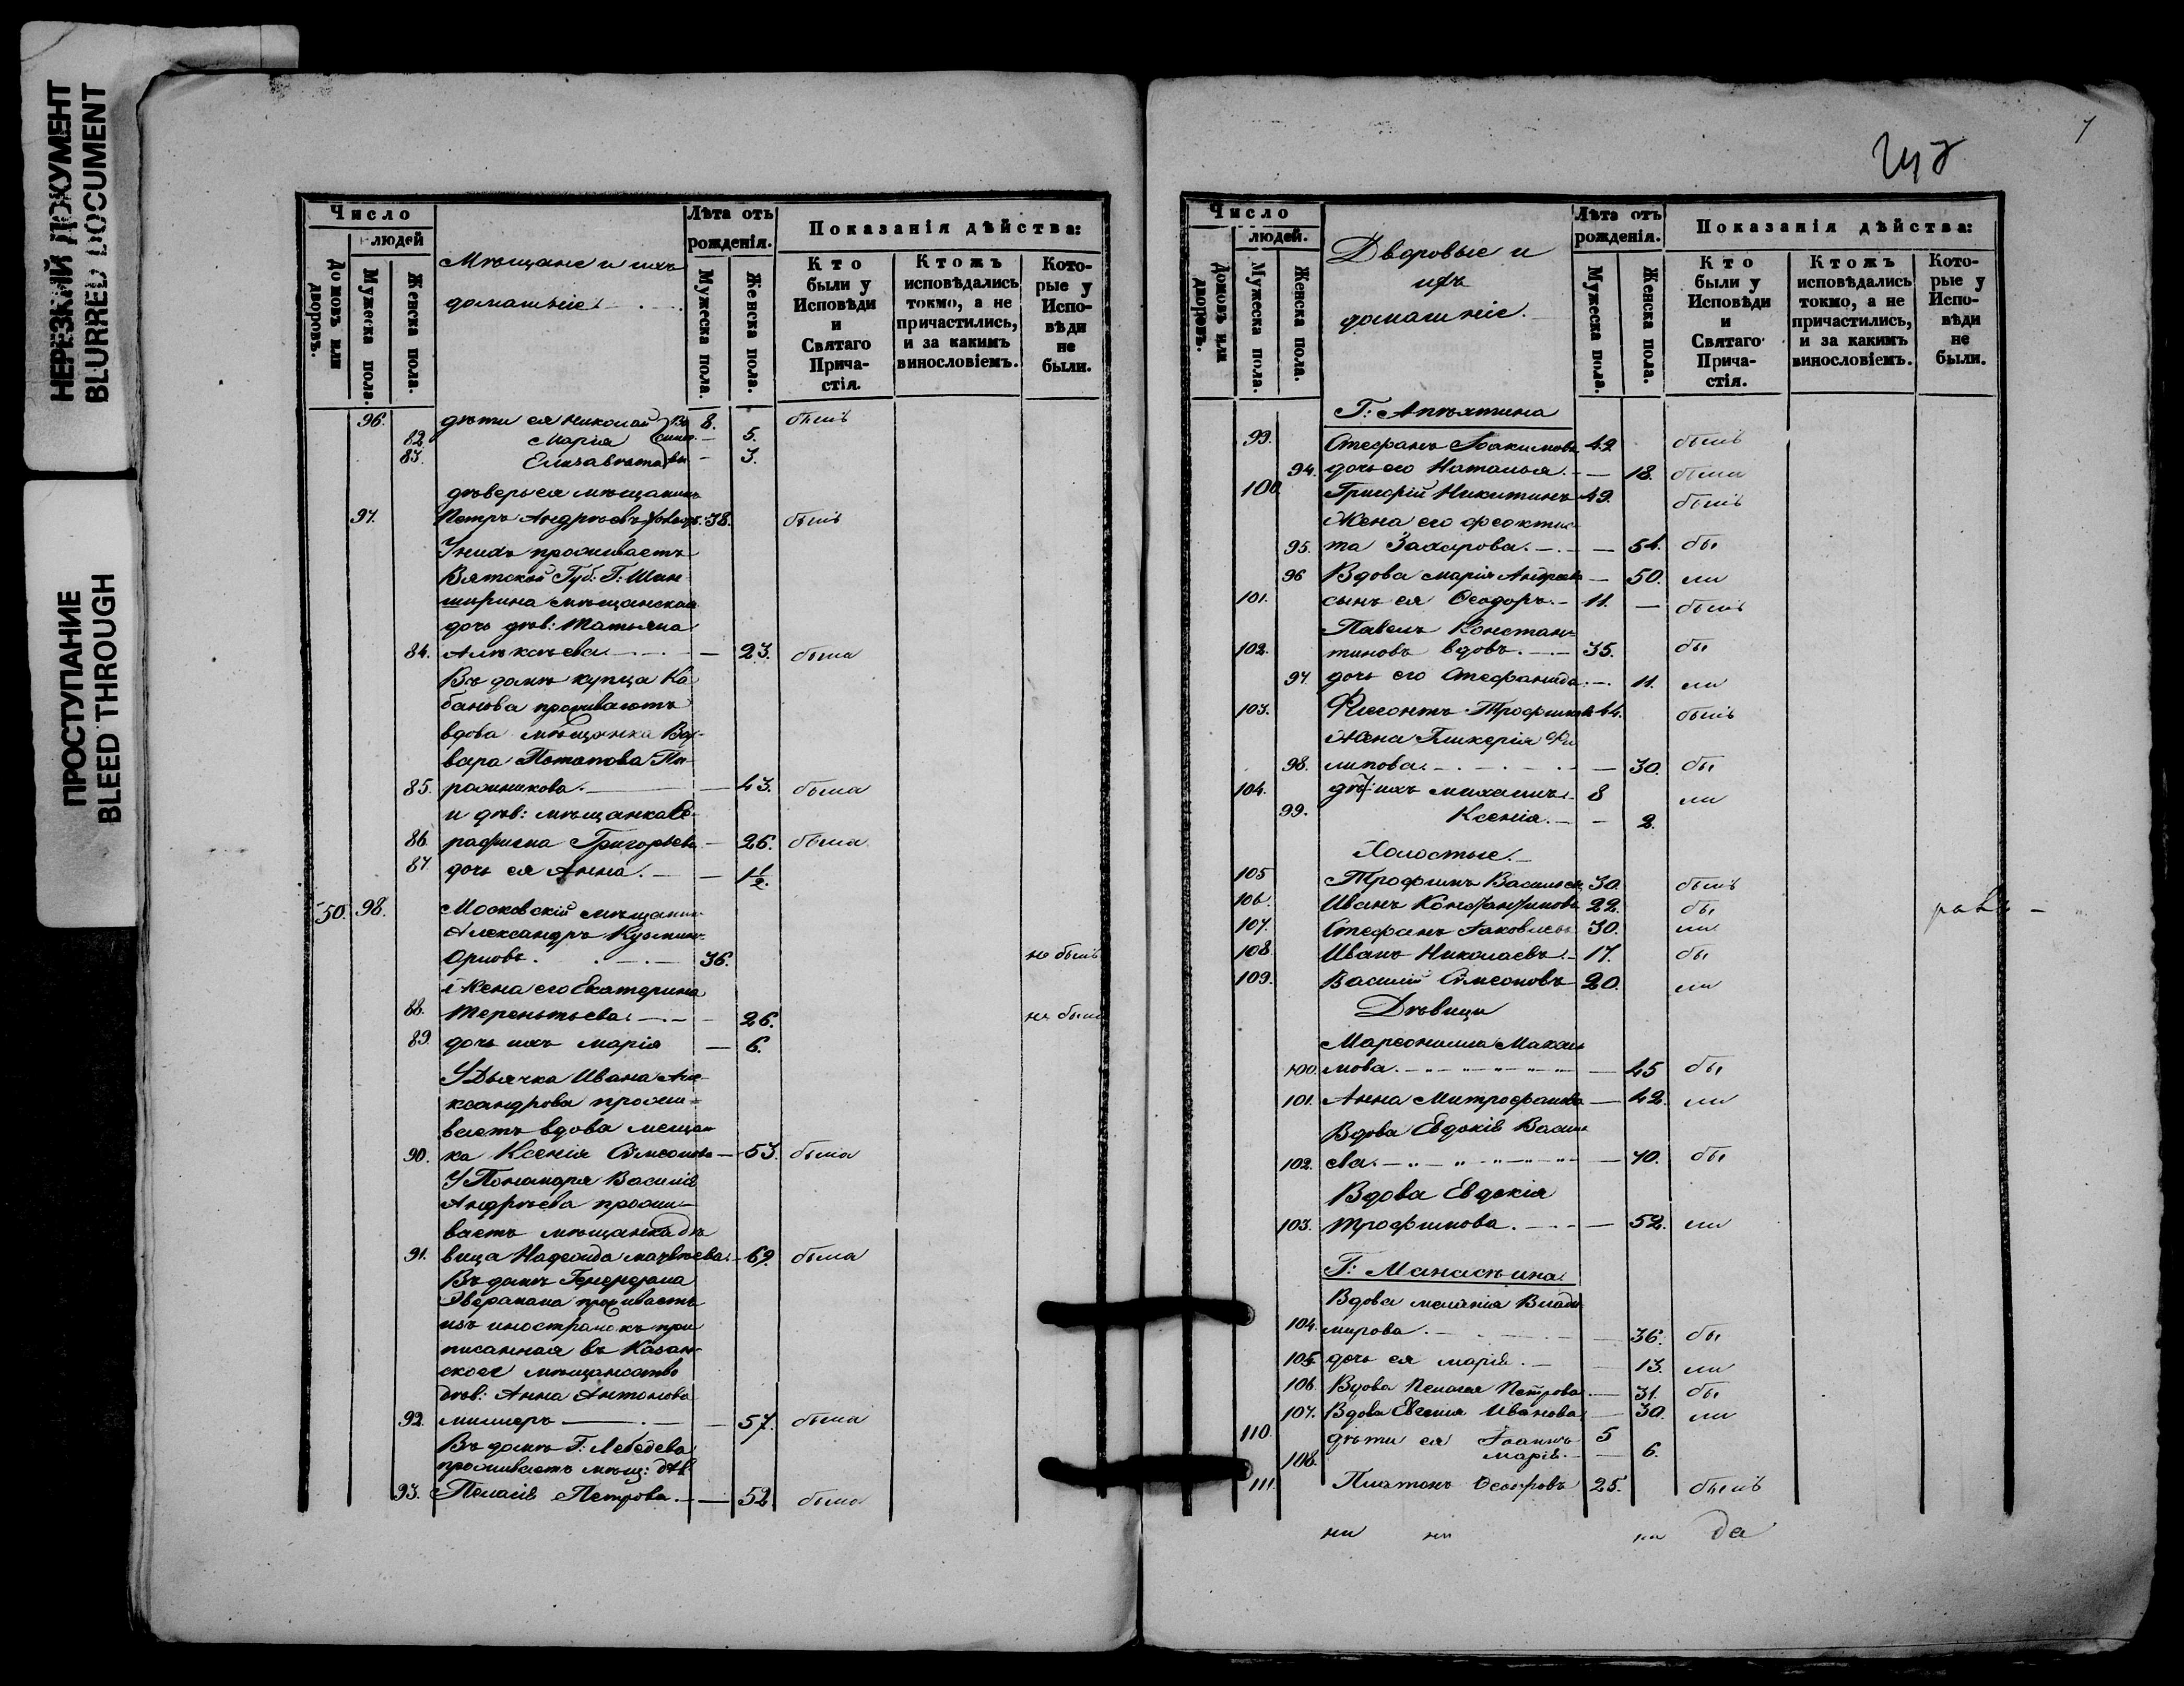 НЕРЕЗКИЙ ДОКУМЕНТ
BLURRED DOCUMENT
ПРОСТУПАНИЕ
BLEED THROUGH
Число
людей
Домовъ или дворовъ.
Мужеска пола.
Женска пола.
Мѣщане и ихъ
домашніе.
Лѣта отъ рожденія.
Мужеска пола.
Женска пола.
Показанія дѣйства:
Кто были у Исповѣди и Святаго Причастія.
Ктожъ исповѣдались токмо, а не причастились, и за какимъ винословіемъ.
Которые у Исповѣди не были.
96. дѣти ея Николай 8. былъ
82. Марія — 5.
83. Елизавета — 3.
дѣверь ея мѣщанинъ
97. Петръ Андреевъ 38. былъ
У нихъ проживаетъ
Вятской Губ: Г:
мѣщанская
дочь дѣв: Татьяна
84. Алексѣева — 23. была
Въ домѣ купца Ка-
банова проживаютъ
вдова мѣщанка Вар-
вара Потапова Пи-
85. рожникова. — 43. была
и дѣв: мѣщанка Се-
86. рафима Григорьева — 26. была
87. дочь ея Анна. — 1½.
50. 98. Московскій мѣщанинъ
Александръ Кузминъ
Орловъ. 36. не былъ
Жена его Екатерина
88. Терентьева. — 26. не была
89. дочь ихъ Марія — 6.
У Дьячка Ивана Але-
ксандрова прожи-
ваетъ вдова мещан
90. ка Ксенія Симеонова — 53. была
У Пономаря Василія
Андреева прожи-
ваетъ мѣщанка дѣ
91. вица Надежда Матвѣева. — 69. была
Въ домѣ
проживаетъ
изъ иностранокъ при
писанная въ Казан-
ское мѣщанство
дѣв: Анна Антонова
92. миллеръ — 57. была
Въ домѣ Г: Лебедева
проживаетъ мѣщ: дѣв:
93. Пелагія Петрова. — 52. была
7
Число
людей.
Домовъ или дворовъ.
Мужеска пола.
Женска пола.
Дворовые и
ихъ
домашніе.
Лѣта отъ рожденія.
Мужеска пола.
Женска пола.
Показанія дѣйства:
Кто были у Исповѣди и Святаго Причастія.
Ктожъ исповѣдались токмо, а не причастились, и за какимъ винословіемъ.
Которые у Исповѣди не были.
Г: Апехтина
99. Стефанъ Іоакимовъ 42 былъ
94. дочь его Наталья. — 18. была
100. Григорій Никитинъ 49. былъ
Жена его Феоктис-
95. та Захарова. — 54. бы
96 Вдова Марія Андреева — 50. ли
101. сынъ ея Ѳеодоръ. 11. — былъ
Павелъ Констан-
102. тиновъ вдовъ. 35. бы
97. дочь его Стефанида. — 11. ли
103. Трофимовъ 44. былъ
Жена Гликерія Фи
98. липова. — 30. бы
104. дѣт: ихъ Михаилъ. 8 ли
99. Ксенія. — 2.
Холостые.
105 Трофимъ Васильевъ 30. былъ
106. Иванъ Константиновъ 22. бы
107. Стефанъ Іаковлевъ 30. ли
108. Иванъ Николаевъ. 17. бы
109. Василій Симеоновъ 20. ли
Дѣвицы
Маркіонилла Макси
100. мова. — 45 бы
101. Анна Митрофанова — 42. ли
Вдова Евдокія Василь
102. ева. — 70. бы
Вдова Евдокія
103. Трофимова. — 52. ли
Г: Манасеина
Вдова Меланія Влади
104. мирова. — 36. бы
105. дочь ея Марія. — 13. ли
106. Вдова Пелагея Петрова — 31. бы
107. Вдова Евгенія Иванова — 30. ли
110. дѣти ея Іоаннъ 5
108. Марія. — 6.
111. Платонъ Ѳеодоровъ 25. былъ
ни ни ни да